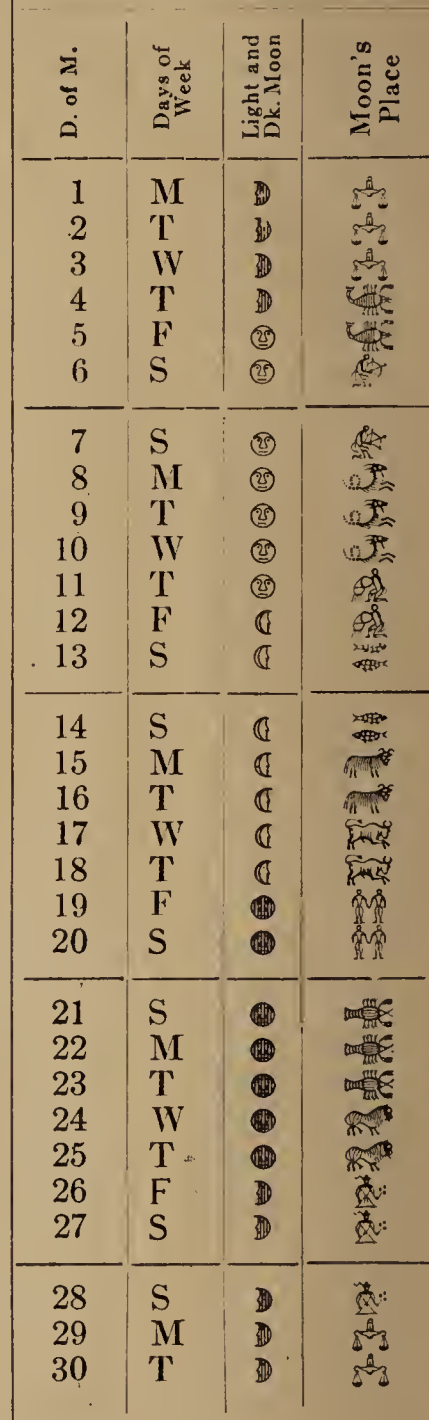 D. of M. Days of Week Light and Dk. Moon Moon's Place
1 M
2 T
3 W
4 T
5 F
6 S
7 S
8 M
9 T
10 W
11 T
12 F
13 S
14 S
15 M
16 T
17 W
18 T
19 F
20 S
21 S
22 M
23 T
24 W
25 T
26 F
27 S
28 S
29 M
30 T